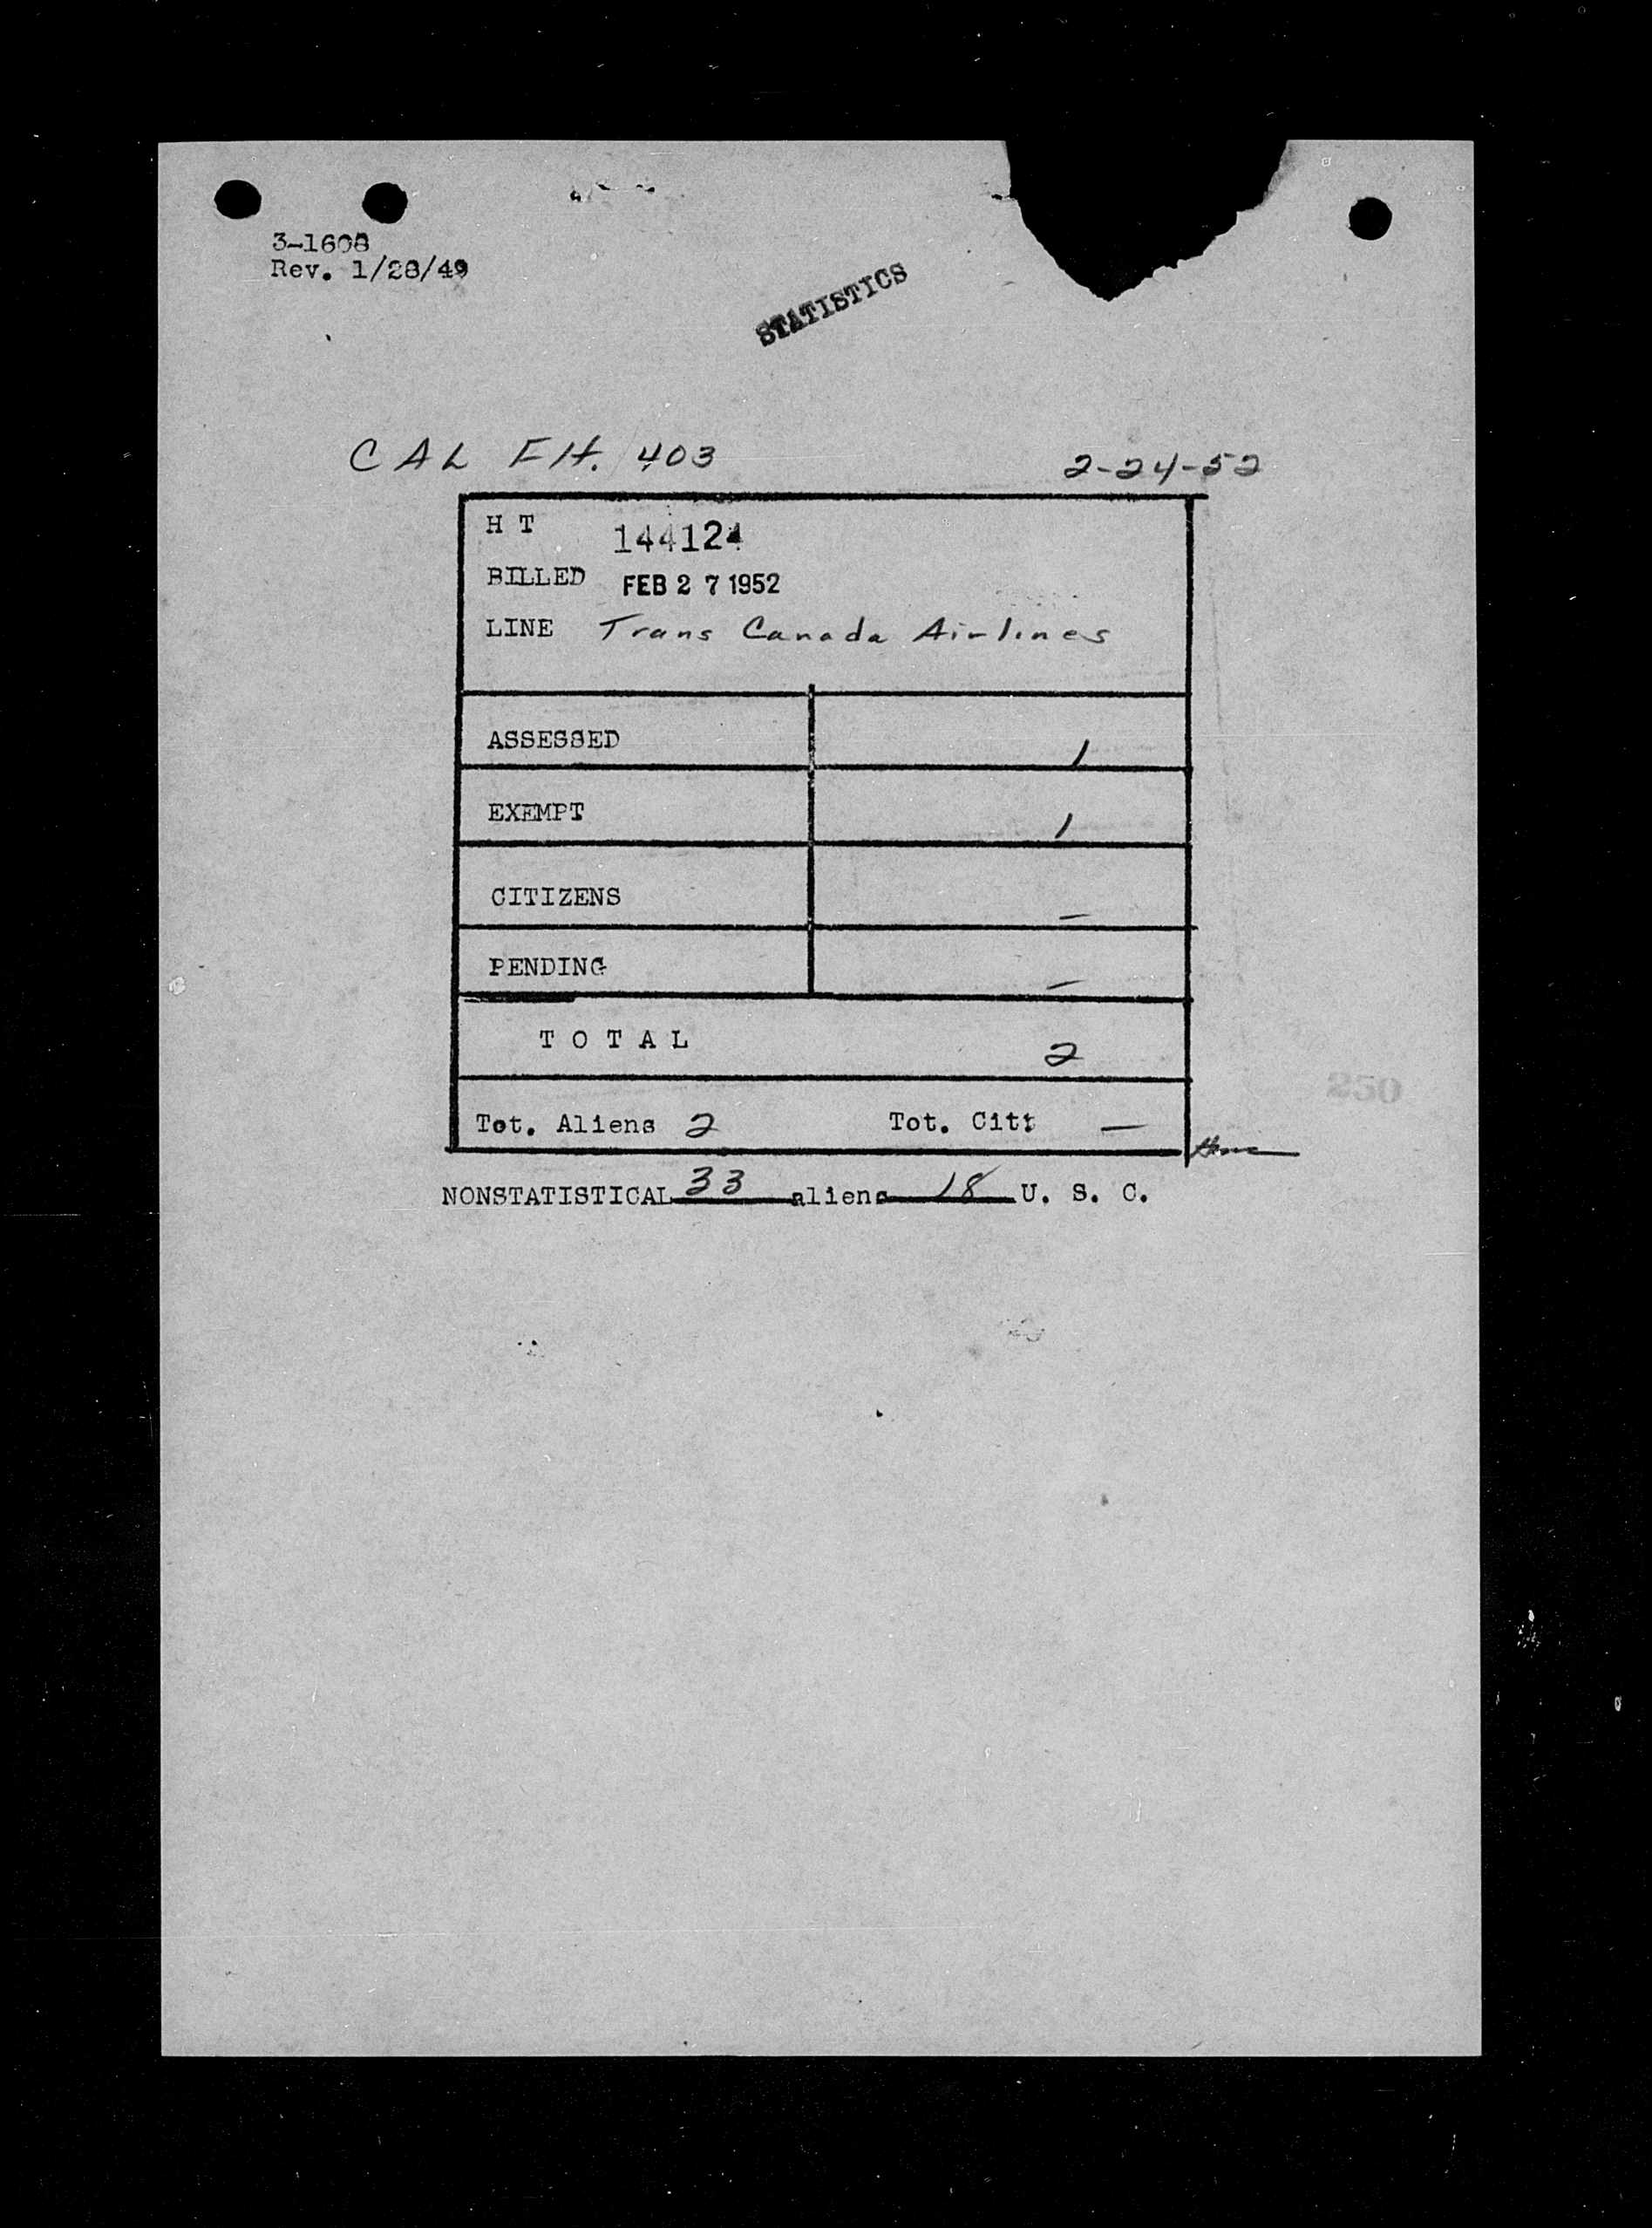 3-1608
Rev. 1/28/49
STATISTICS
CAL Flt. 403 2-24-52
H T 144124
BILLED FEB 27 1952
LINE Trans Canada Airlines
ASSESSED 1
EXEMPT 1
CITIZENS –
PENDING –
T O T A L 2
250
Tot. Aliens 2 Tot. Citz –
NONSTATISTICAL 33 aliens 18 U. S. C.